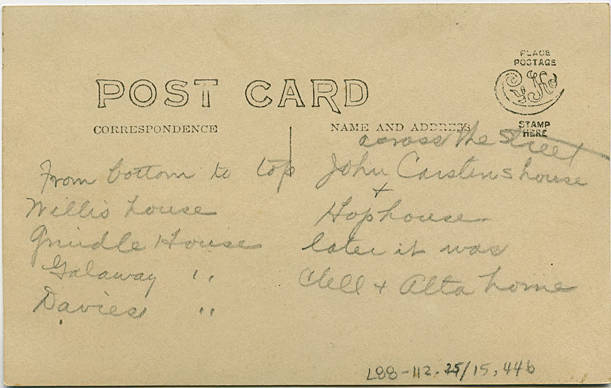 PLACE
POSTAGE
POST CARD
STAMP
HERE
CORRESPONDENCE
NAME AND ADDRESS
across the street
From bottom to top
Willis house
Grindle House
Galaway "
Davies "
John Carstens house
+
Hophouse
later it was
Clell + Alta home
L88-112.25/15,446